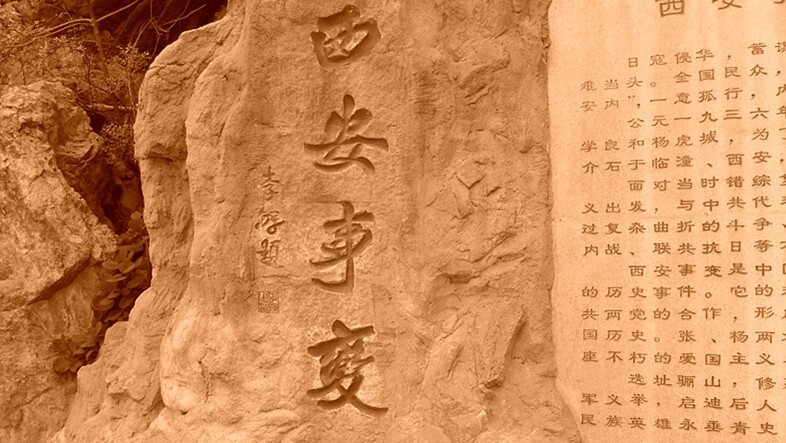 西安事變
西安
日寇侵华，蓄谋
难当头。全国民众，
安内”，一意孤行，内
公元一九三六年
学良和杨虎城，为
介石于临潼、西安
面对当时错综
义出发，与中共代
过复杂、曲折的斗争
内战、联共抗日等
西安事变是中
的历史事件。它的
共两党的合作，形
国历史。张、杨两
座不朽的爱国主义
选址骊山，修
军义举，启迪后人
民族英雄永垂青史